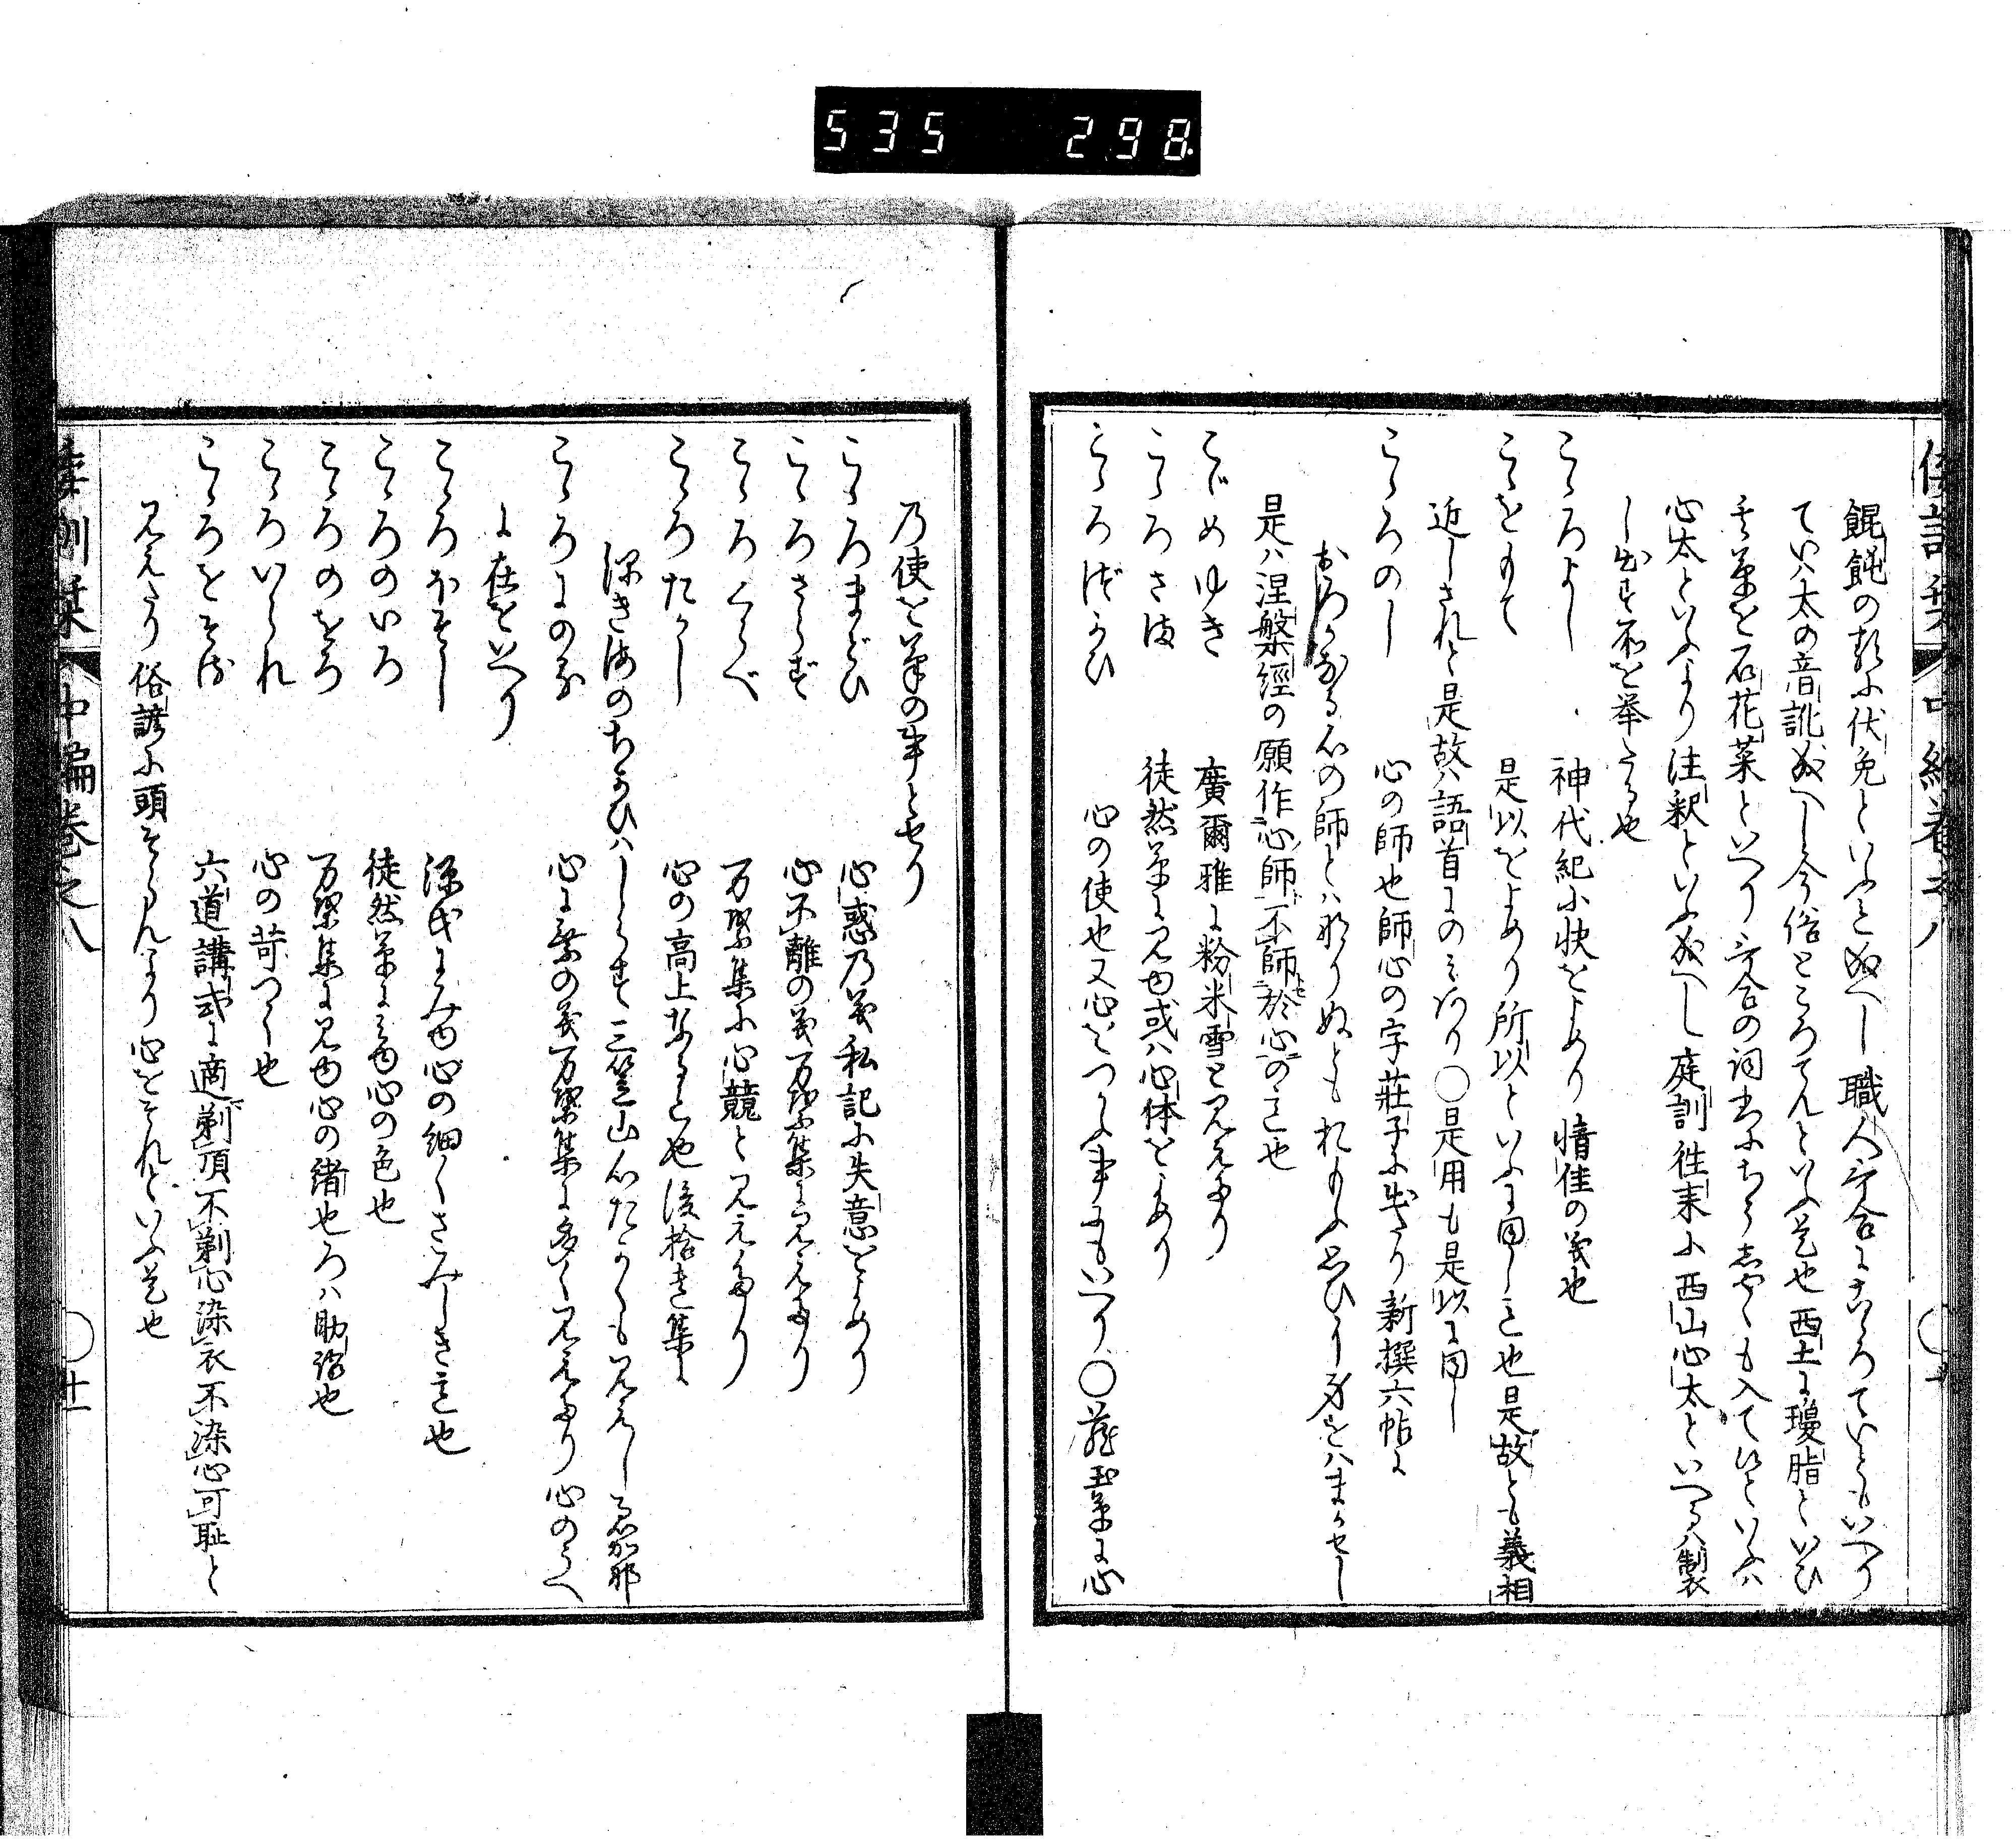 535 298
餛飩の類に伏兎といふと成へし職人歌合にこゝろていともいへり
ていハ太の音訛成へし今俗ところてんといふ是也西土に瓊脂といひ
又草を石花菜といへり歌合の詞書にちうしやくも入てけといふハ
心太といふより注釈といふ成へし庭訓徃来に西山心太といへるハ製
し出す所を挙たる也
こゝろよし 神代紀に快をよめり情佳の義也
こゝをもて 是以をよめり所以といふに同しき也是故とも義相
近しされと是故ハ語首にのミあり〇是用も是以に同し
こゝろのし 心の師也師心の字莊子に出たり新撰六帖に
おろかなる心の師とハなりぬともおもふ思ひに身をハまかせし
是ハ涅槃經の願作心師不師於心の意也
こゞめゆき 廣爾雅に粉米雪と見えたり
こゝろさま 徒然草に見ゆ或ハ心体をよめり
こゝろづかひ 心の使也又心をつかふ事にもいへり〇藏玉集に心
倭訓栞 中編巻之八 〇十一
乃使を筆の事とせり
こゝろまどひ 心惑乃義私記に失意をよめり
こゝろさらず 心不離の義万葉集に見えたり
こゝろくらべ 万葉集に心競と見えたり
こゝろたかし 心の高上なるを也後拾遺集に
深き海のちかひハしらす三笠山心たかくも見えし君か那
こゝろにのる 心に乗の義万葉集に多く見えたり心のうへ
に在をいへり
こゝろほそし 源氏によみゆ心の細くさみしき意也
こゝろのいろ 徒然草に見ゆ心の色也
こゝろのをろ 万葉集に見ゆ心の緒也ろハ助語也
こゝろいられ 心の苛つく也
こゝろをそる 六道講式に適剃頂不剃心染衣不染心可耻と
見えたり俗諺に頭そらんより心をそれといふ是也